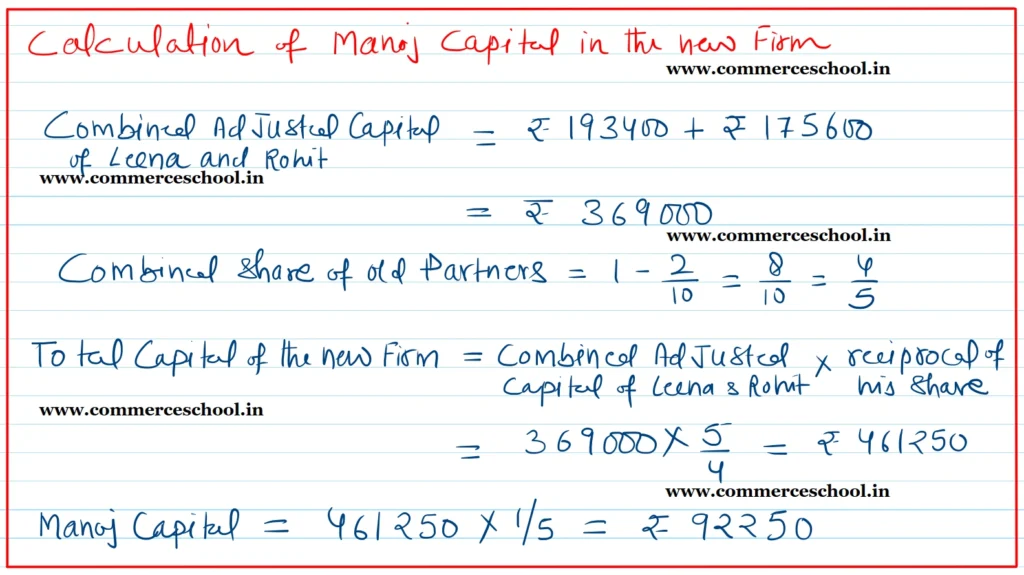 Calculation of Manoj Capital in the new Firm
www.commerceschool.in
Combined AdJusted Capital = ₹ 193400 + ₹ 175600
of Leena and Rohit
www.commerceschool.in
= ₹ 369000
www.commerceschool.in
Combined share of old Partners = 1 - 2/10 = 8/10 = 4/5
Total Capital of the new Firm = Combined AdJusted × reciprocal of
Capital of Leena & Rohit his share
www.commerceschool.in
= 369000 × 5/4 = ₹ 461250
www.commerceschool.in
Manoj Capital = 461250 × 1/5 = ₹ 92250